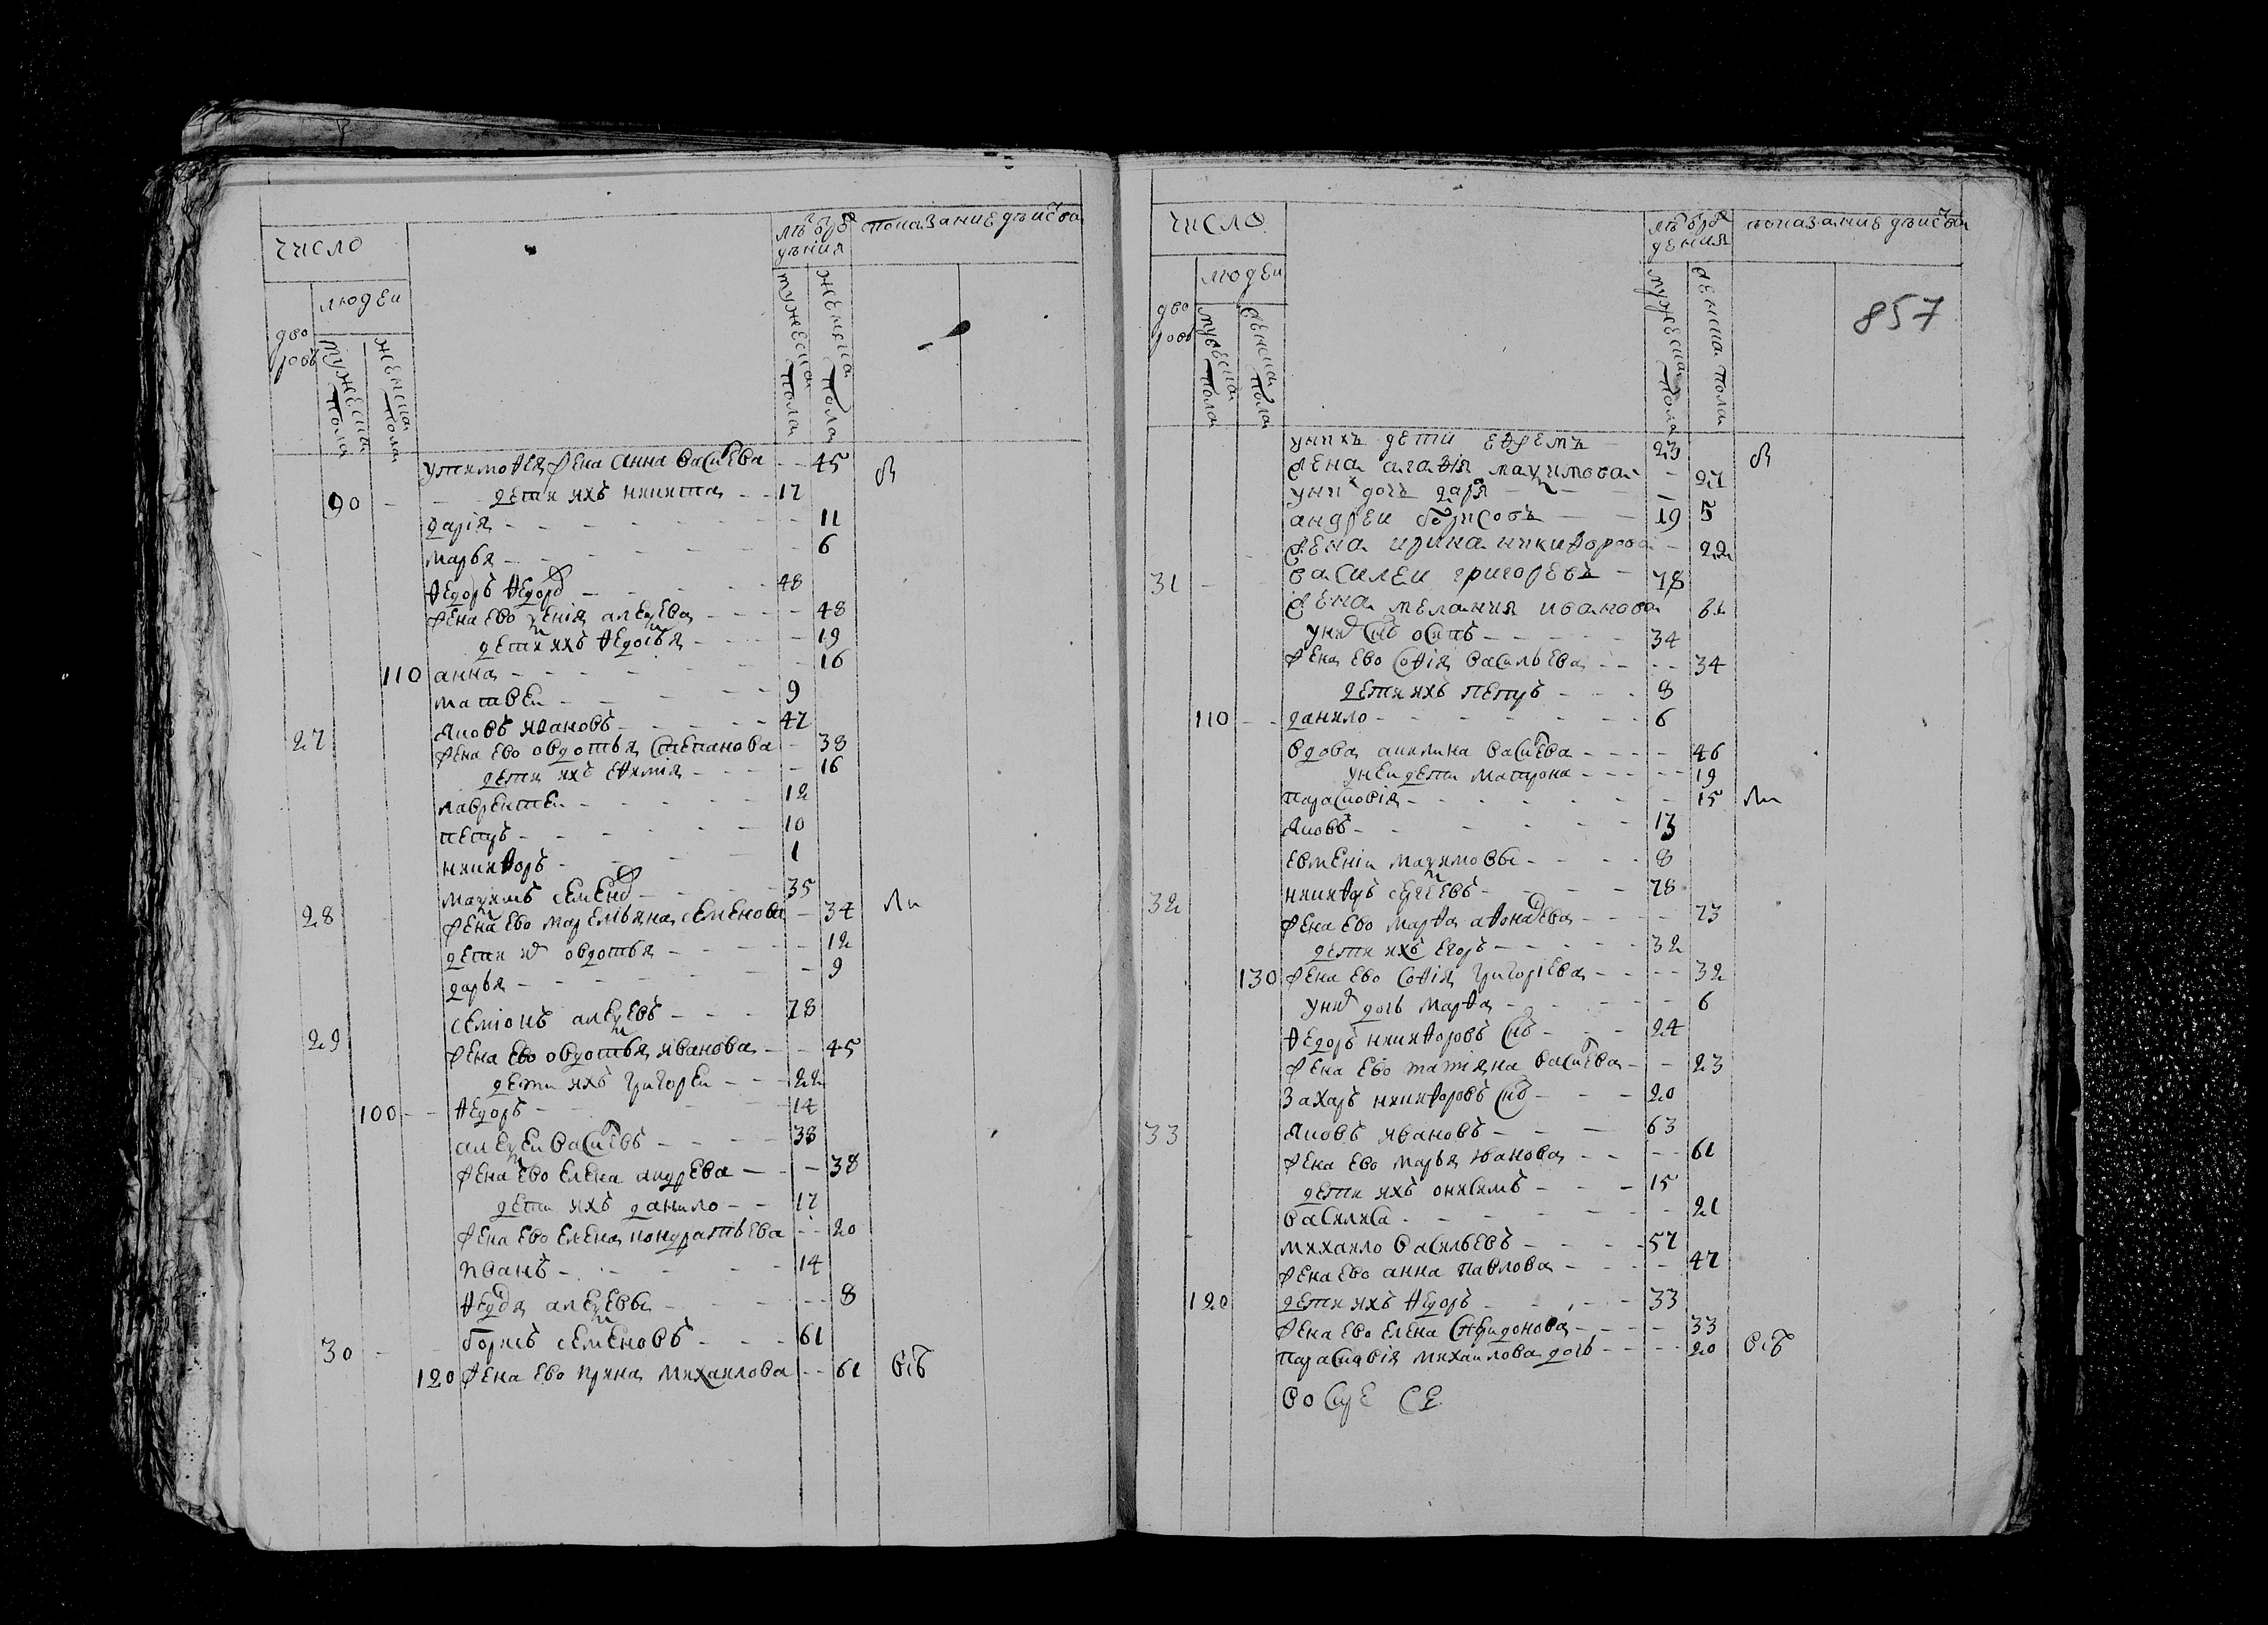 число
людеи
дво
ровъ
мужеска
пола
женска
пола
лѣтъ рож
дения
мужеска
пола
женска
пола
показание дѣиства
у тимофея жена анна васильева - - 45
90 - - дети ихъ никита - - 17
дарiя - - - 11
марья - - - 6
федоръ федоровъ - - - 48
жена ево ксенiя алексеева - - - 48
дети ихъ федосья - - - 19
110 анна - - - 16
матвеи - - - 9
27 яковъ ивановъ - - - 47
жена ево овдотья степанова - 38
дети ихъ ефимiя - - - 16
лаврентеи - - - 12
петръ - - - 10
никифоръ - - - 1
28 максимъ семеновъ - - - 35
жена ево маремьяна семенова - 34
дети их овдотья - - - 12
дарья - - - 9
29 семионъ алексеевъ - - - 78
жена ево овдотья иванова - - 45
дети ихъ григореи - - - 22
100 - - федоръ - - - 14
алексеи васильевъ - - - 38
жена ево елена андреева - - - 38
дети ихъ данило - - 17
жена ево елена кондратьева - - 20
иванъ - - - 14
федосья алексеевы - - - 8
30 - - борисъ семеновъ - - - 61
120 жена ево ирина михаилова - - 61
число
людеи
дво
ровъ
мужеска
пола
женска
пола
лѣтъ рож
дения
мужеска
пола
женска пола
показание дѣиства
857
у нихъ дети ефремъ - 23
жена агафiя максимова - - 27
у них дочь дарья - - - 5
андреи борисовъ - - 19
жена ирина никифорова - 22
31 - василеи григоревъ - 78
жена мелания иванова 61
у них снъ осипъ - - - 34
жена ево софiя васильева - - - 34
дети ихъ петръ - - - 8
110 - - данило - - - 6
вдова акилина васильева - - - 46
у неи дети матрона - - - 19
парасковiя - - - 15
яковъ - - - 13
евгенiи максимовы - - - 8
32 никифоръ сергеевъ - - - 78
жена ево марфа афонасева - - - 73
дети ихъ егоръ - - - 32
130 жена ево софiя григорiева - - - 32
у них дочь марфа - - - 6
федоръ никифоровъ снъ - - - 24
жена ево татияна васильева - - 23
захаръ никифоровъ снъ - - - 20
33 яковъ ивановъ - - - 63
жена ево марья иванова - - - 61
дети ихъ онисимъ - - - 15
василиса - - - 21
михаило васильевъ - - - 57
жена ево анна павлова - - - 47
120 дети ихъ федоръ - - - 33
жена ево елена спиридонова - - - 33
парасковiя михаилова дочь - - - 20